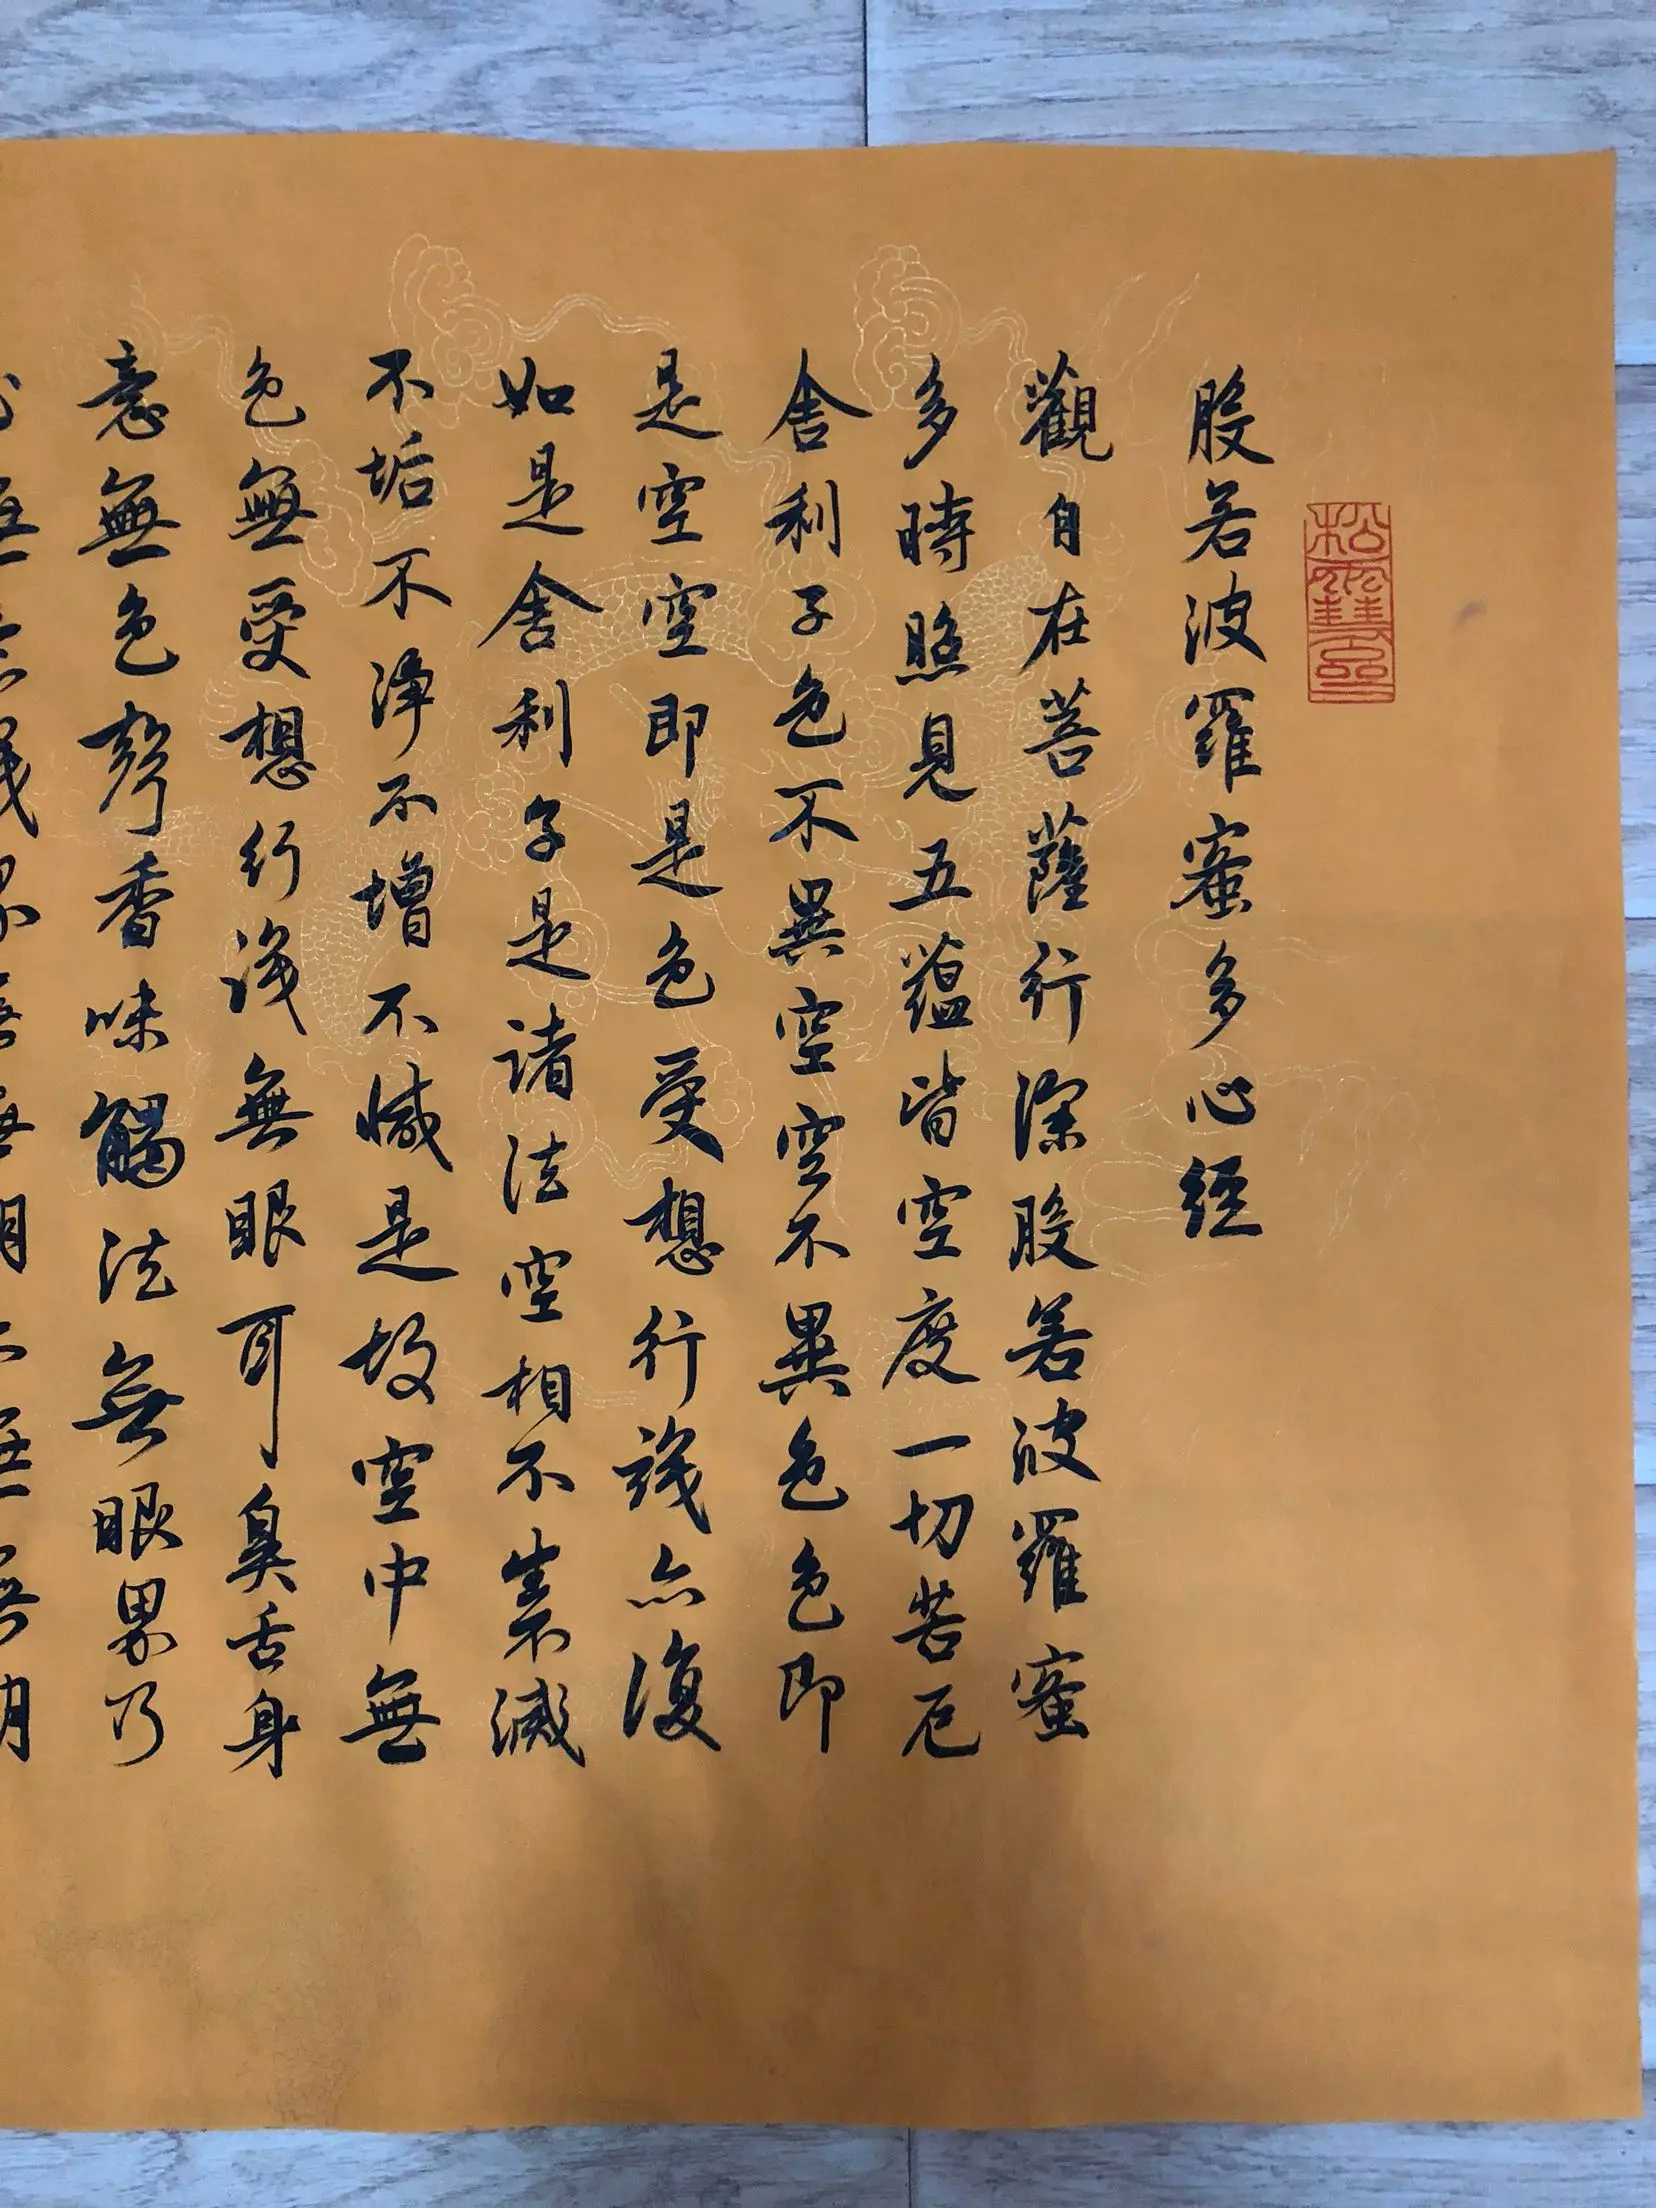 松雪齋
般若波羅蜜多心經
觀自在菩薩行深般若波羅蜜
多時照見五蘊皆空度一切苦厄
舍利子色不異空空不異色色即
是空空即是色受想行識亦復
如是舍利子是諸法空相不生不滅
不垢不淨不增不減是故空中無
色無受想行識無眼耳鼻舌身
意無色聲香味觸法無眼界乃
無意識界無無明亦無無明